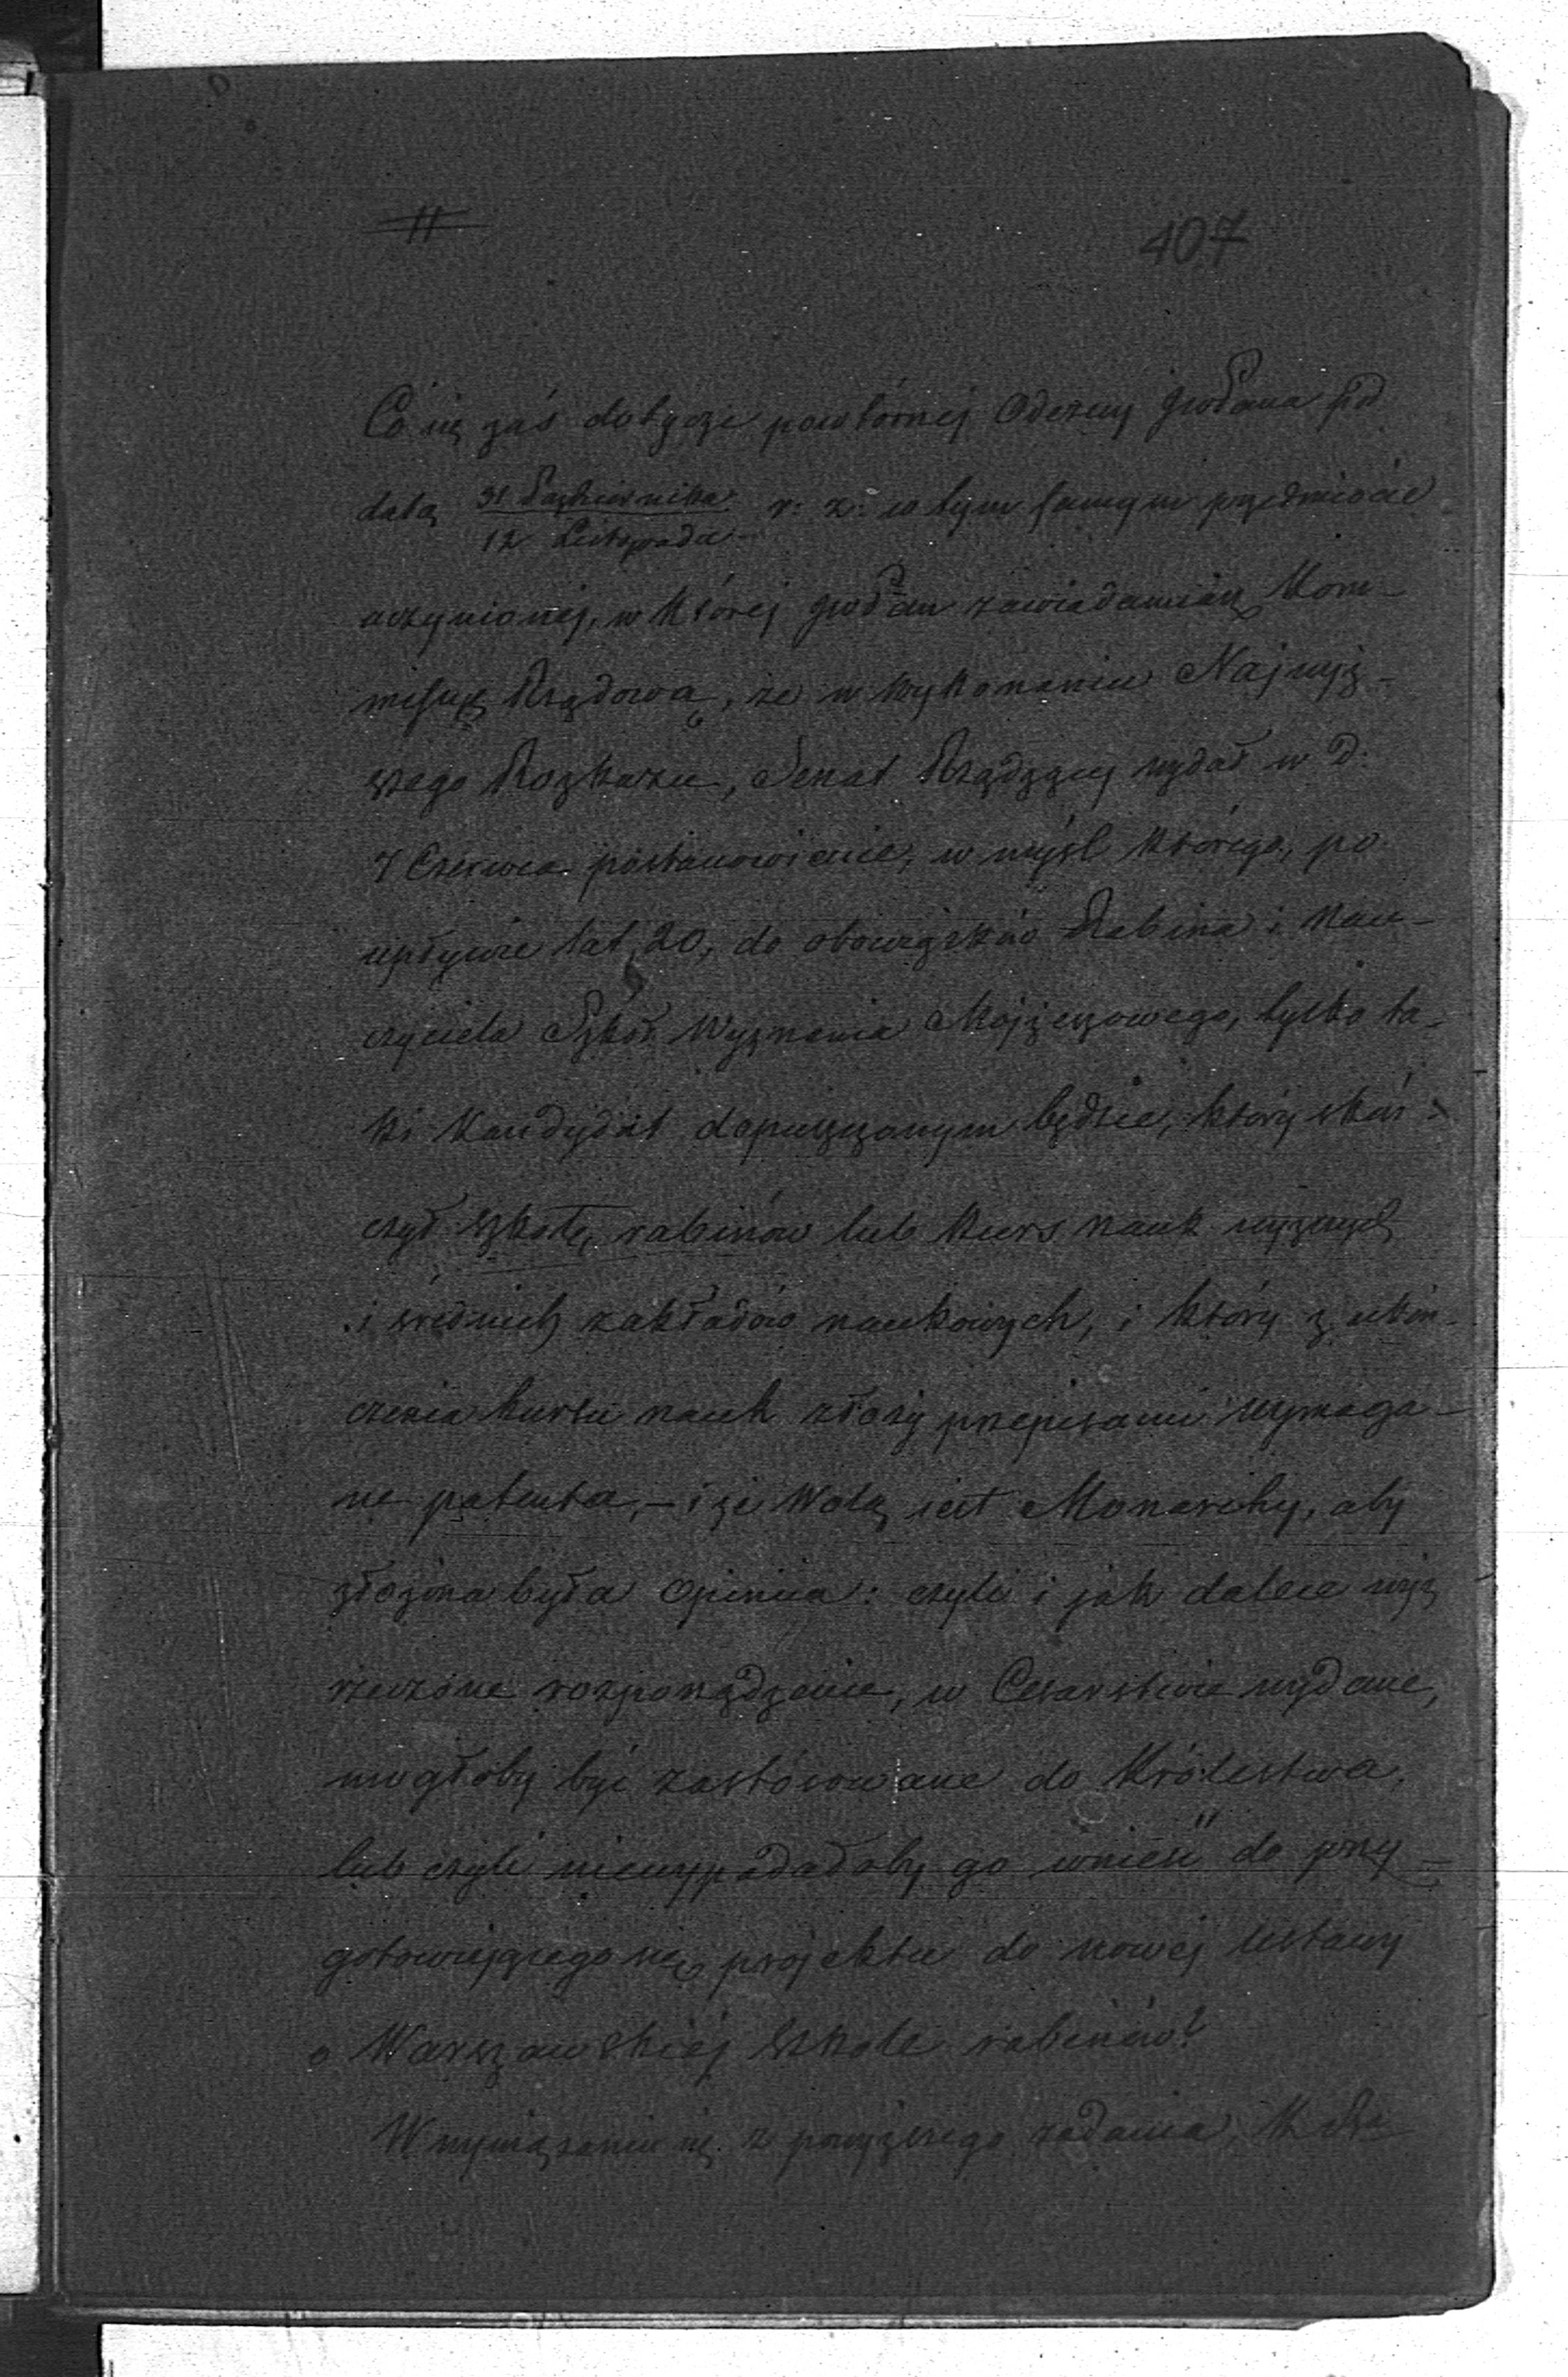 407
Co się zaś dotycze powtórnej Odezwy JWo Pana pod
datą 31 Października r: z: w tym samym przedmiocie
12 Listopada
uczynionej, w której JWo Pan zawiadamiasz Kom-
missyę Rządową, że w wykonaniu Najwyż-
szego Rozkazu, Senat Rządzący wydał w d:
7 Czerwca postanowienie, w myśl którego, po
upływie lat 20, do obowiązków Rabina i Nau-
czyciela Szkół Wyznania Mojżeszowego, tylko ta-
ki Kandydat dopuszczonym będzie, który skoń-
czył szkołę rabinów lub kurs nauk wyższych
i średnich zakładów naukowych, i który z ukoń-
czenia kursu nauk złoży przepisami wymaga-
ne patenta, – i że Wolą jest Monarchy, aby
złożona była opinia: czyli i jak dalece wyż
rzeczone rozporządzenie, w Cesarstwie wydane,
mogłoby być zastósowane do Królestwa,
lub czyli niewypadałoby go wnieść do przy-
gotowującego się projektu do nowej ustawy
o Warszawskiej Szkole rabinów?
W wywiązaniu się z powyższego zadania,